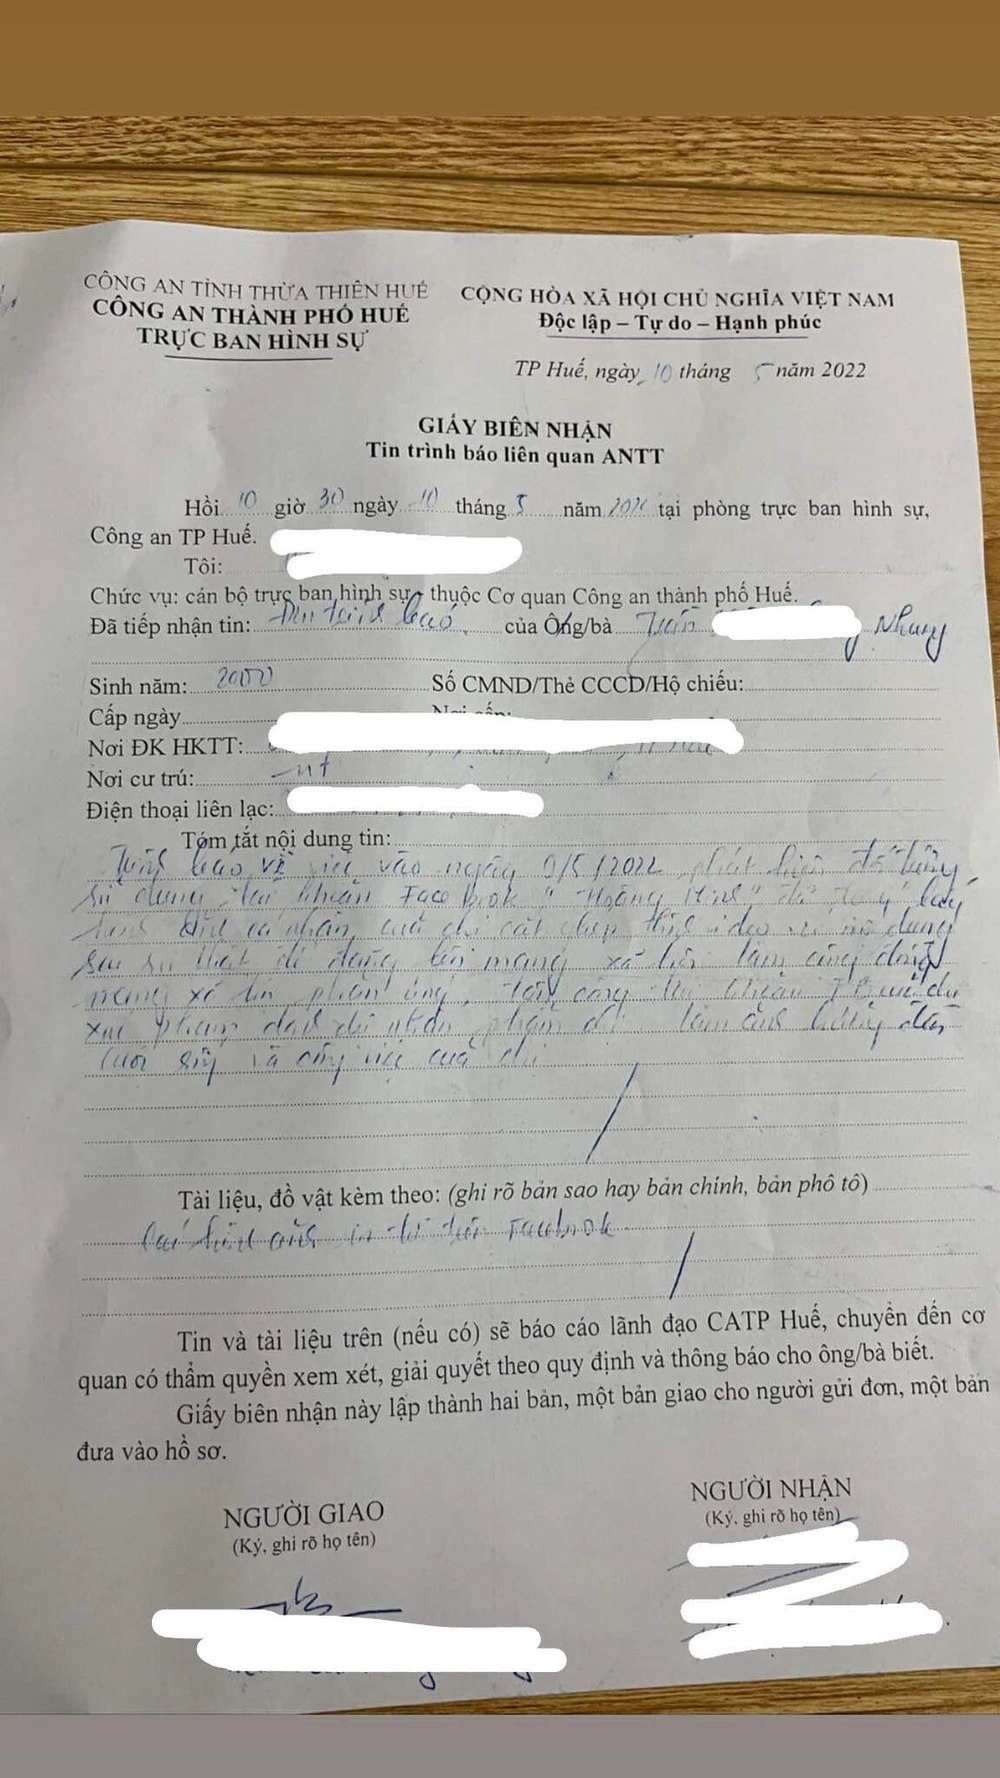 CÔNG AN TỈNH THỪA THIÊN HUẾ
CÔNG AN THÀNH PHỐ HUẾ
TRỰC BAN HÌNH SỰ
CỘNG HÒA XÃ HỘI CHỦ NGHĨA VIỆT NAM
Độc lập – Tự do – Hạnh phúc
TP Huế, ngày 10 tháng 5 năm 2022
GIẤY BIÊN NHẬN
Tin trình báo liên quan ANTT
Hồi 10 giờ 30 ngày 10 tháng 5 năm 2022 tại phòng trực ban hình sự,
Công an TP Huế.
Tôi:
Chức vụ: cán bộ trực ban hình sự - thuộc Cơ quan Công an thành phố Huế.
Đã tiếp nhận tin: Đơn trình báo của Ông/bà Trần Nhung
Sinh năm: 2000 Số CMND/Thẻ CCCD/Hộ chiếu:
Cấp ngày
Nơi ĐK HKTT:
Nơi cư trú: nt
Điện thoại liên lạc:
Tóm tắt nội dung tin:
Trình báo về việc vào ngày 9/5/2022 phát hiện đối tượng
sử dụng tài khoản Facebook "Hoàng Minh" đã lấy
hình cá nhân của chị cắt ghép video nội dung
sai sự thật để đăng lên mạng xã hội làm cộng đồng
mạng xã hội phản ứng, tấn công
xúc phạm danh dự nhân phẩm làm ảnh hưởng đến
cuộc sống và công việc của chị
Tài liệu, đồ vật kèm theo: (ghi rõ bản sao hay bản chính, bản phô tô)
Các hình ảnh in từ Facebook.
Tin và tài liệu trên (nếu có) sẽ báo cáo lãnh đạo CATP Huế, chuyển đến cơ
quan có thẩm quyền xem xét, giải quyết theo quy định và thông báo cho ông/bà biết.
Giấy biên nhận này lập thành hai bản, một bản giao cho người gửi đơn, một bản
đưa vào hồ sơ.
NGƯỜI GIAO
(Ký, ghi rõ họ tên)
NGƯỜI NHẬN
(Ký, ghi rõ họ tên)